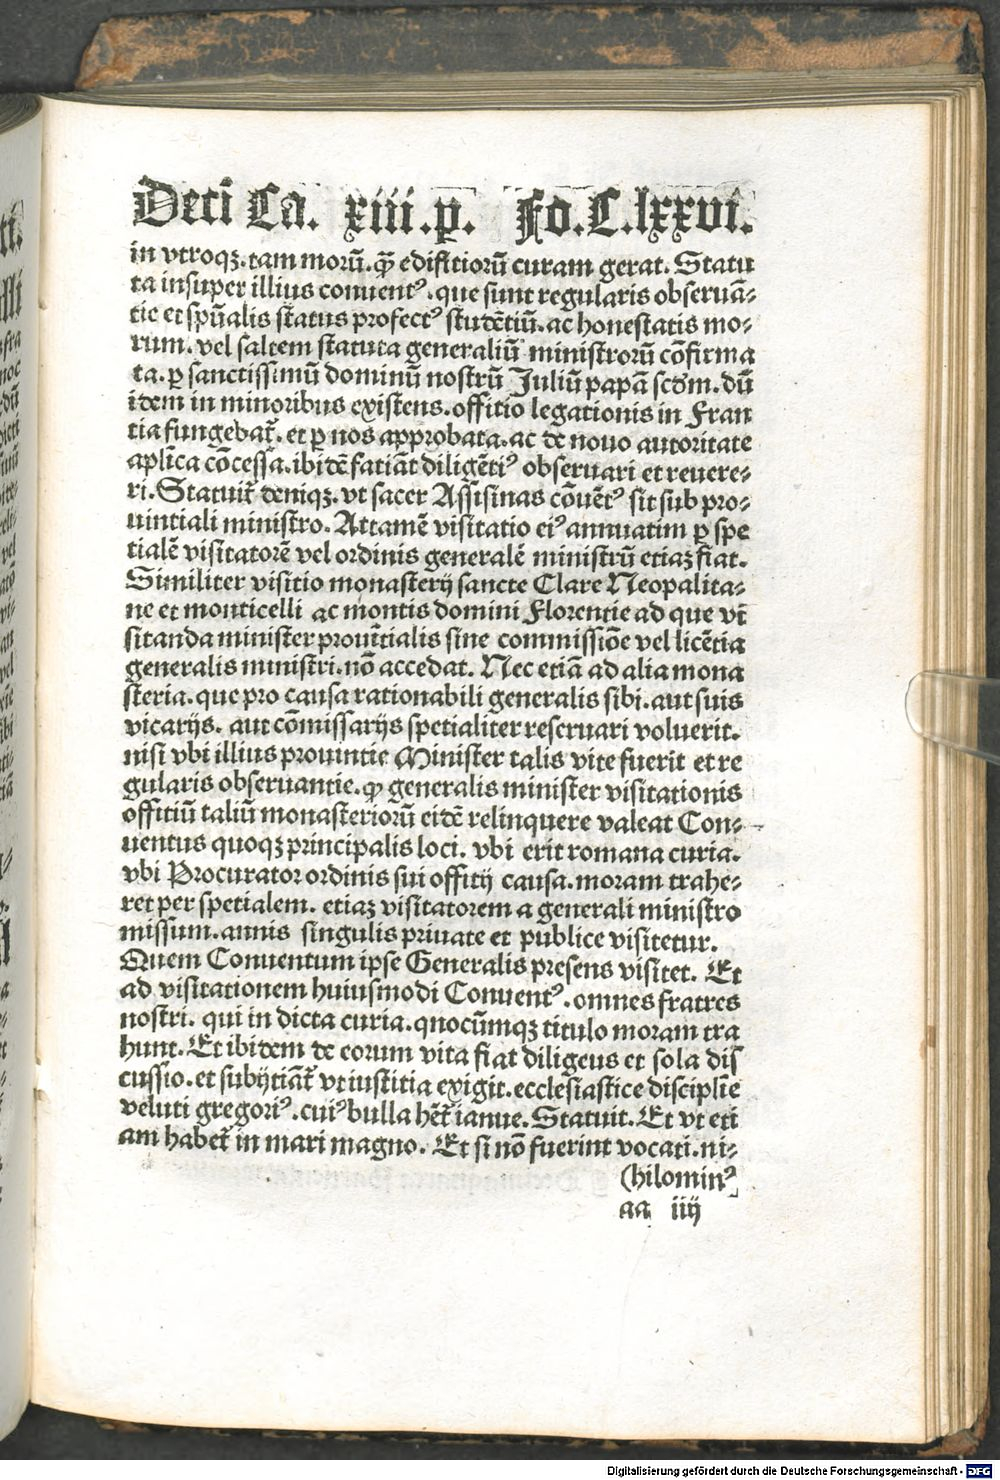 Deci Ca. xiii.p. Fo.C.lxxvi.
in vtroqꝫ.tam morū.q̄ȝ edifitiorū curam gerat. Statu
ta insuper illius conuentꝰ.que sunt regularis obseruā-
tie et spūalis status profectꝰ studētiū.ac honestatis mo-
rum.vel saltem statuta generaliū ministrorū cōfirma
ta.ꝑ sanctissimū dominū nostrū Juliū papā scd̄m.dū
idem in minoribus existens.offitio legationis in Fran
tia fungebat̄.et ꝑ nos approbata.ac de nouo autoritate
apl̄ica cōcessa.ibidē fatiāt diligētiꝰ obseruari et reuere-
ri.Statuit̄ deniqꝫ.vt sacer Assisinas cōuētꝰ sit sub pro-
uintiali ministro.Attamē visitatio eiꝰ annuatim ꝑ spe
tialē visitatorē vel ordinis generalē ministrū etiaꝫ fiat.
Similiter visitio monasterij sancte Clare Neopalita-
ne et monticelli ac montis domini Florentie ad que vi
sitanda minister prouītialis sine commissiōe vel licētia
generalis ministri.nō accedat. Nec etiā ad alia mona
steria.que pro causa rationabili generalis sibi.aut suis
vicarijs.aut cōmissarijs spetialiter reseruari voluerit.
nisi vbi illius prouintie Minister talis vite fuerit et re
gularis obseruantie.ꝙ generalis minister visitationis
offitiū taliū monasteriorū eidē relinquere valeat Con-
uentus quoqꝫ principalis loci. vbi erit romana curia.
vbi Procurator ordinis sui offitij causa.moram trahe-
ret per spetialem. etiaꝫ visitatorem a generali ministro
missum.annis singulis priuate et publice visitetur.
Quem Conuentum ipse Generalis presens visitet. Et
ad visitationem huiusmodi Conuentꝰ.omnes fratres
nostri. qui in dicta curia.qnocūmqꝫ titulo moram tra
hunt.Et ibidem de eorum vita fiat diligeus et sola dis
cussio.et subijtiāt̄ vt iustitia exigit.ecclesiastice disciplīe
veluti gregoriꝰ.cuiꝰ bulla hēt̄ ianue.Statuit.Et vt eti
am habet̄ in mari magno. Et si nō fuerint vocati.ni-
(hilominꝰ
aa iiij
Digitalisierung gefördert durch die Deutsche Forschungsgemeinschaft - DFG